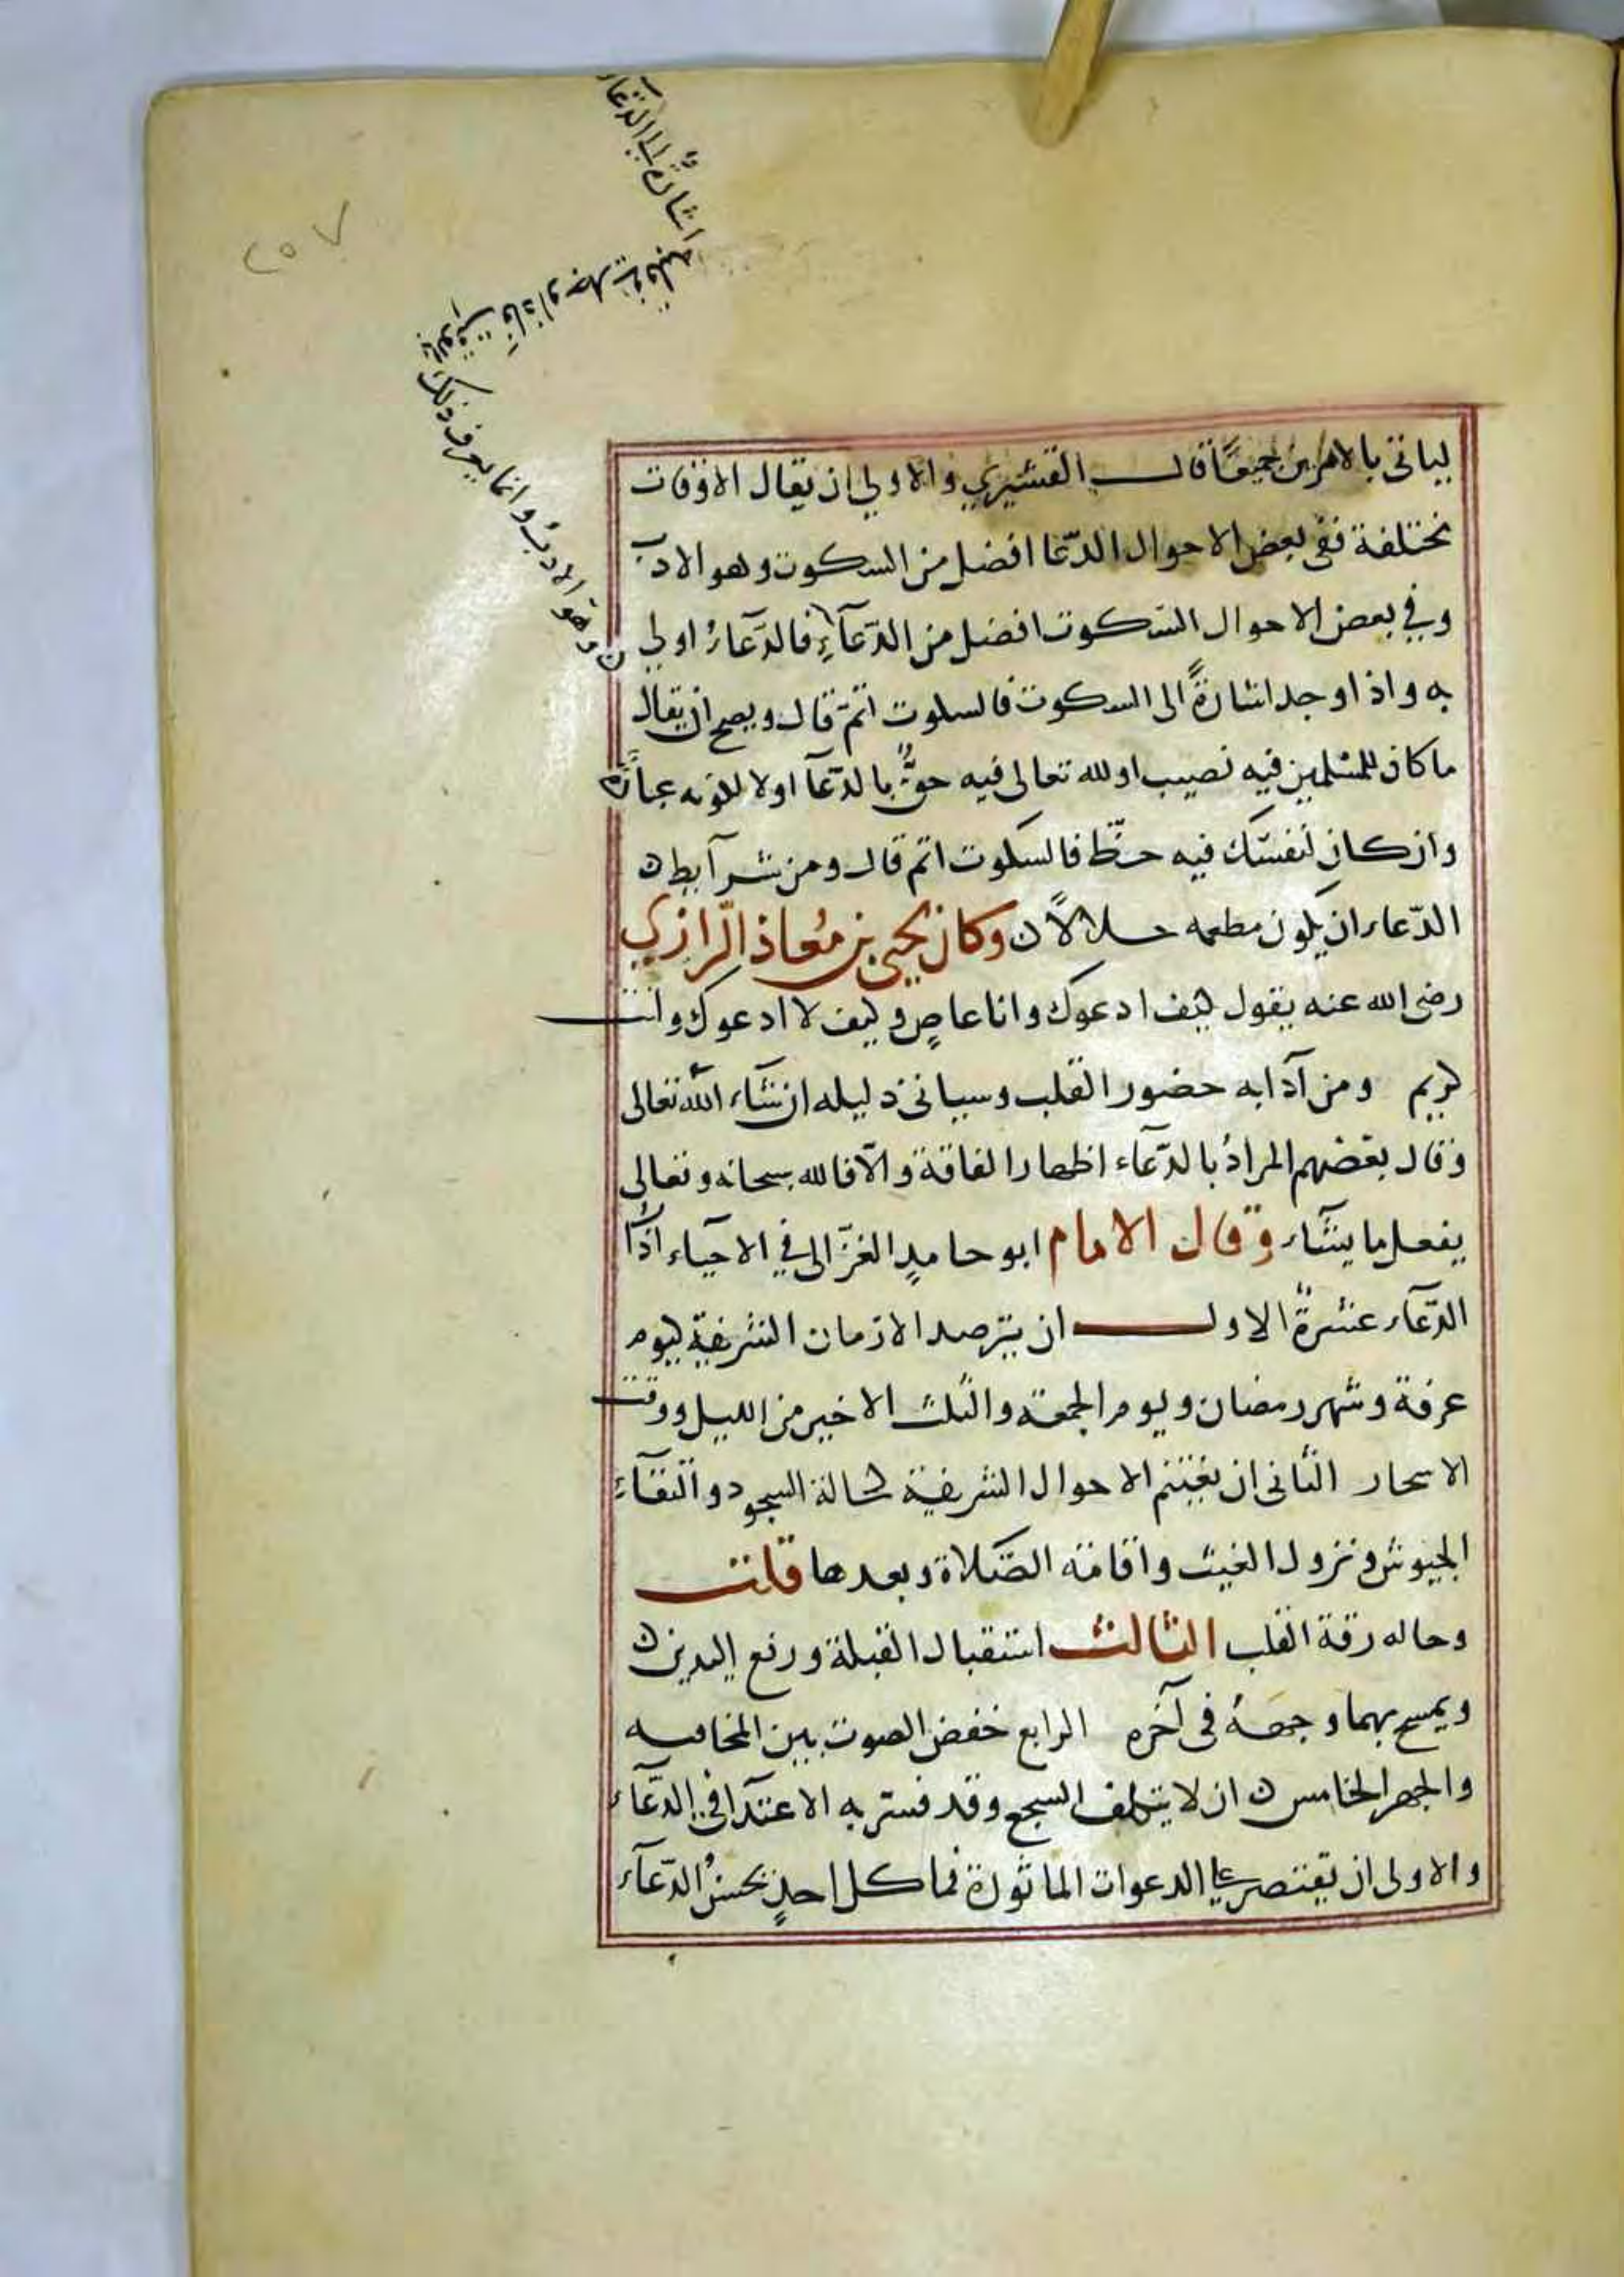 لياتى بالامرين جميعًا قال القشيري والاولي ان يقال الاوقات
مختلفة ففى بعض الاحوال الدّعا افضل من السكوت وهو الادب
وفي بعض الاحوال السكوت افضل من الدّعآءِ فالدّعآءُ اولي
به واذا وجد اشارةً الى السكوت فالسكوت اتمّ قال ويصح ان يقال
ما كان للمسلمين فيه نصيب او لله تعالى فيه حقٌّ بالدّعآ اولا لكونه عبادةً
وان كان لنفسك فيه حظّ فالسكوت اتم قال ومن شرآيط
الدّعاء ان يكون مطعمه حلالاً وكان يحيى بن مُعاذ الرّازي
رضى الله عنه يقول كيف ادعوك وانا عاصٍ وكيف لا ادعوك وانت
كريم ومن آدابه حضور القلب وسياتى دليله ان شآء الله تعالى
وقال بعضهم المرادُ بالدّعآء اظهار الفاقة والّا فالله سبحانه وتعالى
يفعل ما يشآء وقال الامام ابو حامدٍ الغزّالى في الاحيآء اداب
الدّعآء عشرةٌ الاول ان يترصد الازمان الشريفة كيوم
عرفة وشهر رمضان ويوم الجمعة والثلث الاخير من الليل ووقت
الاسحار الثانى ان يغتنم الاحوال الشريفة كحالة السجود والتقآءِ
الجيوش ونزول الغيث واقامة الصّلاة وبعدها قلت
وحاله رقة القلب الثالث استقبال القبلة ورفع اليدين
ويمسح بهما وجهَهُ فى آخره الرابع خفض الصوت بين المخافته
والجهر الخامس ان لا يتكلف السجع وقد فسّر به الاعتدآ في الدّعآء
والاولى ان يقتصر على الدعوات الماثورة فما كل احدٍ يحسنُ الدّعآء
وهو الادبُ وانما يعرف ذلك
بالوقت فاذا وجد فى قلبه
اشارةً الى الدّعآء
٢٥٧